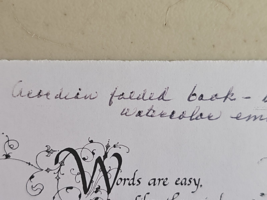 Accordian folded book –
watercolor em
Words are easy,